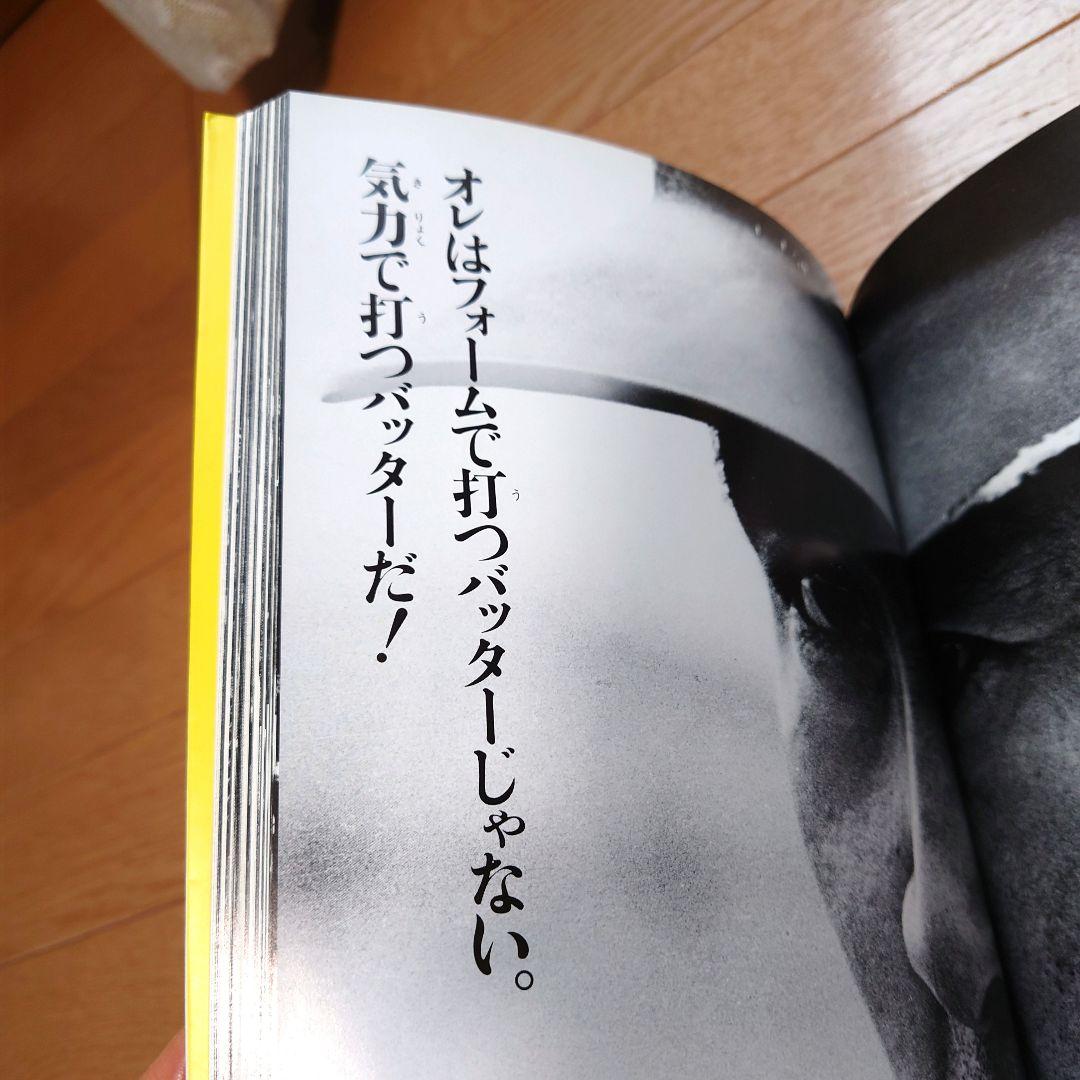 オレはフォームで打つバッターじゃない。
気力で打つバッターだ!